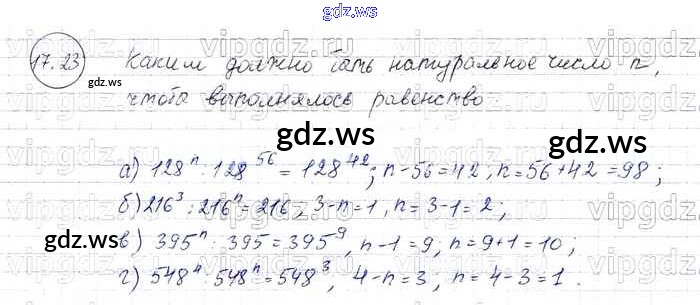 gdz.ws
17.23 Каким должно быть натуральное число n,
gdz.ws
чтобы выполнялось равенство
gdz.ws
а) 128ⁿ : 128⁵⁶ = 128⁴²; n-56=42, n=56+42=98;
б) 216³ : 216ⁿ = 216, 3-n=1, n=3-1=2;
gdz.ws
в) 395ⁿ : 395 = 395⁹, n-1=9; n=9+1=10;
г) 548⁴ : 548ⁿ = 548³, 4-n=3; n=4-3=1.
gdz.ws